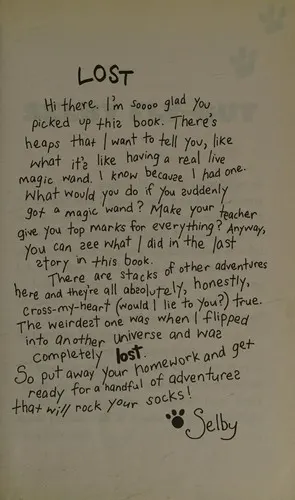 LOST
Hi there. I'm soooo glad you
picked up this book. There's
heaps that I want to tell you, like
what it's like having a real live
magic wand. I know because I had one.
What would you do if you suddenly
got a magic wand? Make your teacher
give you top marks for everything? Anyway,
you can see what I did in the last
story in this book.
There are stacks of other adventures
here and they're all absolutely, honestly,
cross-my-heart (would I lie to you?) true.
The weirdest one was when I flipped
into another universe and was
completely lost.
So put away your homework and get
ready for a handful of adventures
that will rock your socks!
Selby